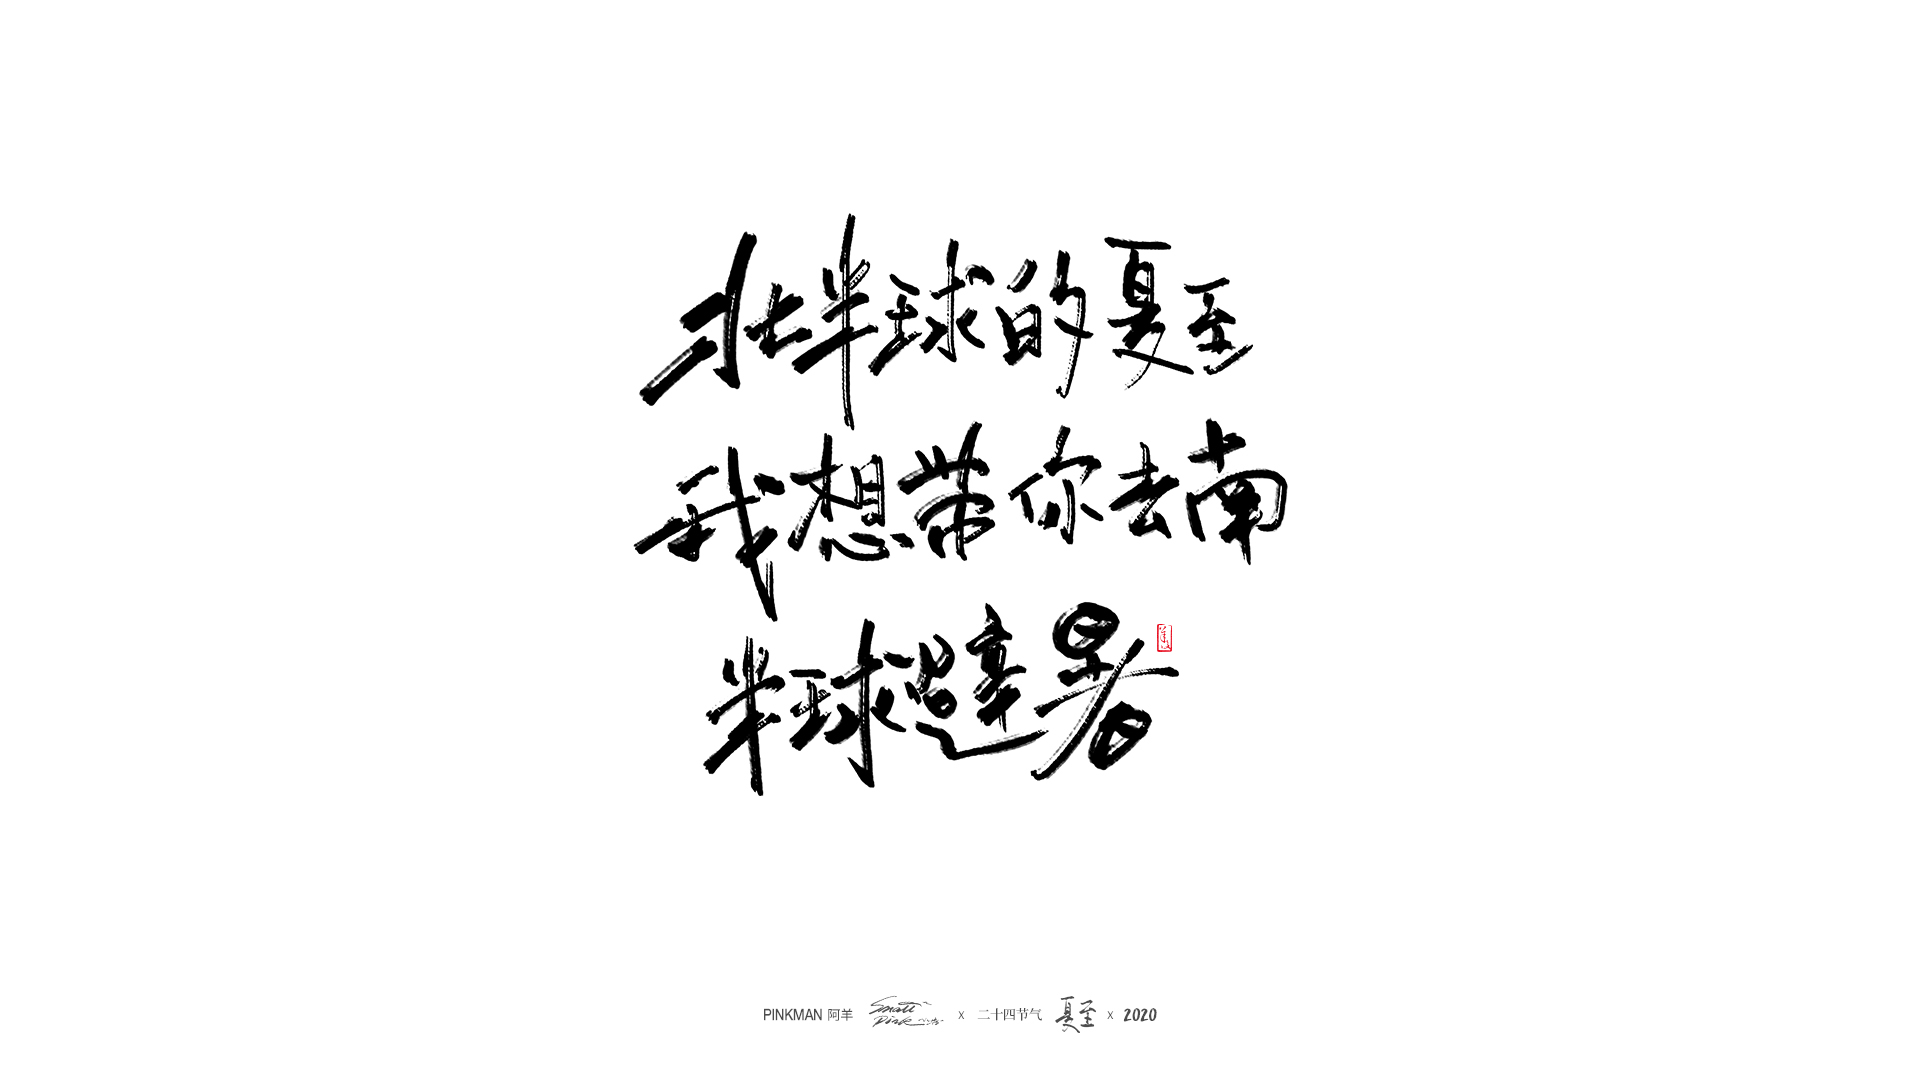 北半球的夏至
我想带你去南
半球避暑
PINKMAN 阿羊 Small Pink x 二十四节气 夏至 x 2020